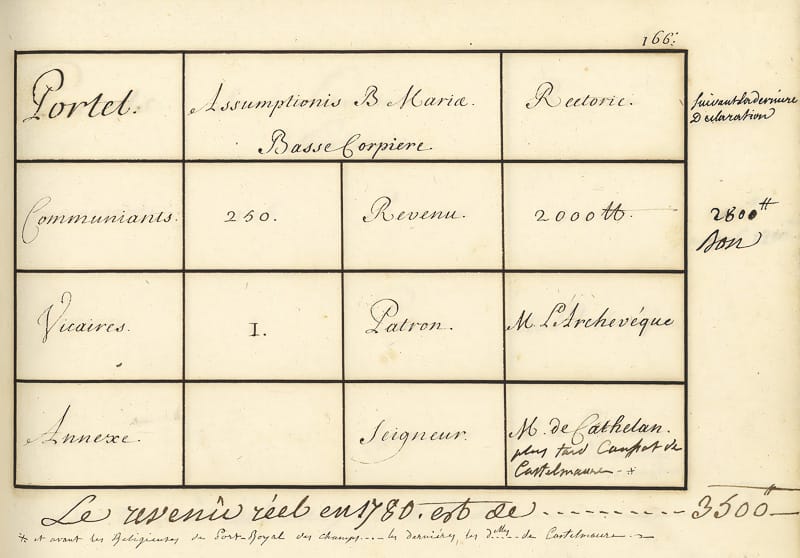 166.
Portet. Assumptionis B Mariæ. Rectorie. suivant la derniere
Basse Corpiere. Declaration
Communiants. 250. Revenu. 2000 tt. 2800 tt
Bon
Vicaires. 1. Patron. M. L'Archevéque
Annexe. Seigneur. M. de Cathelan.
plus tard
Castelmaure - *
Le revenu réel en 1780. est de 3500 tt
* et avant les Religieuses de Port-Royal des champs - - - les derniéres, les d.elles de Castelmaure.